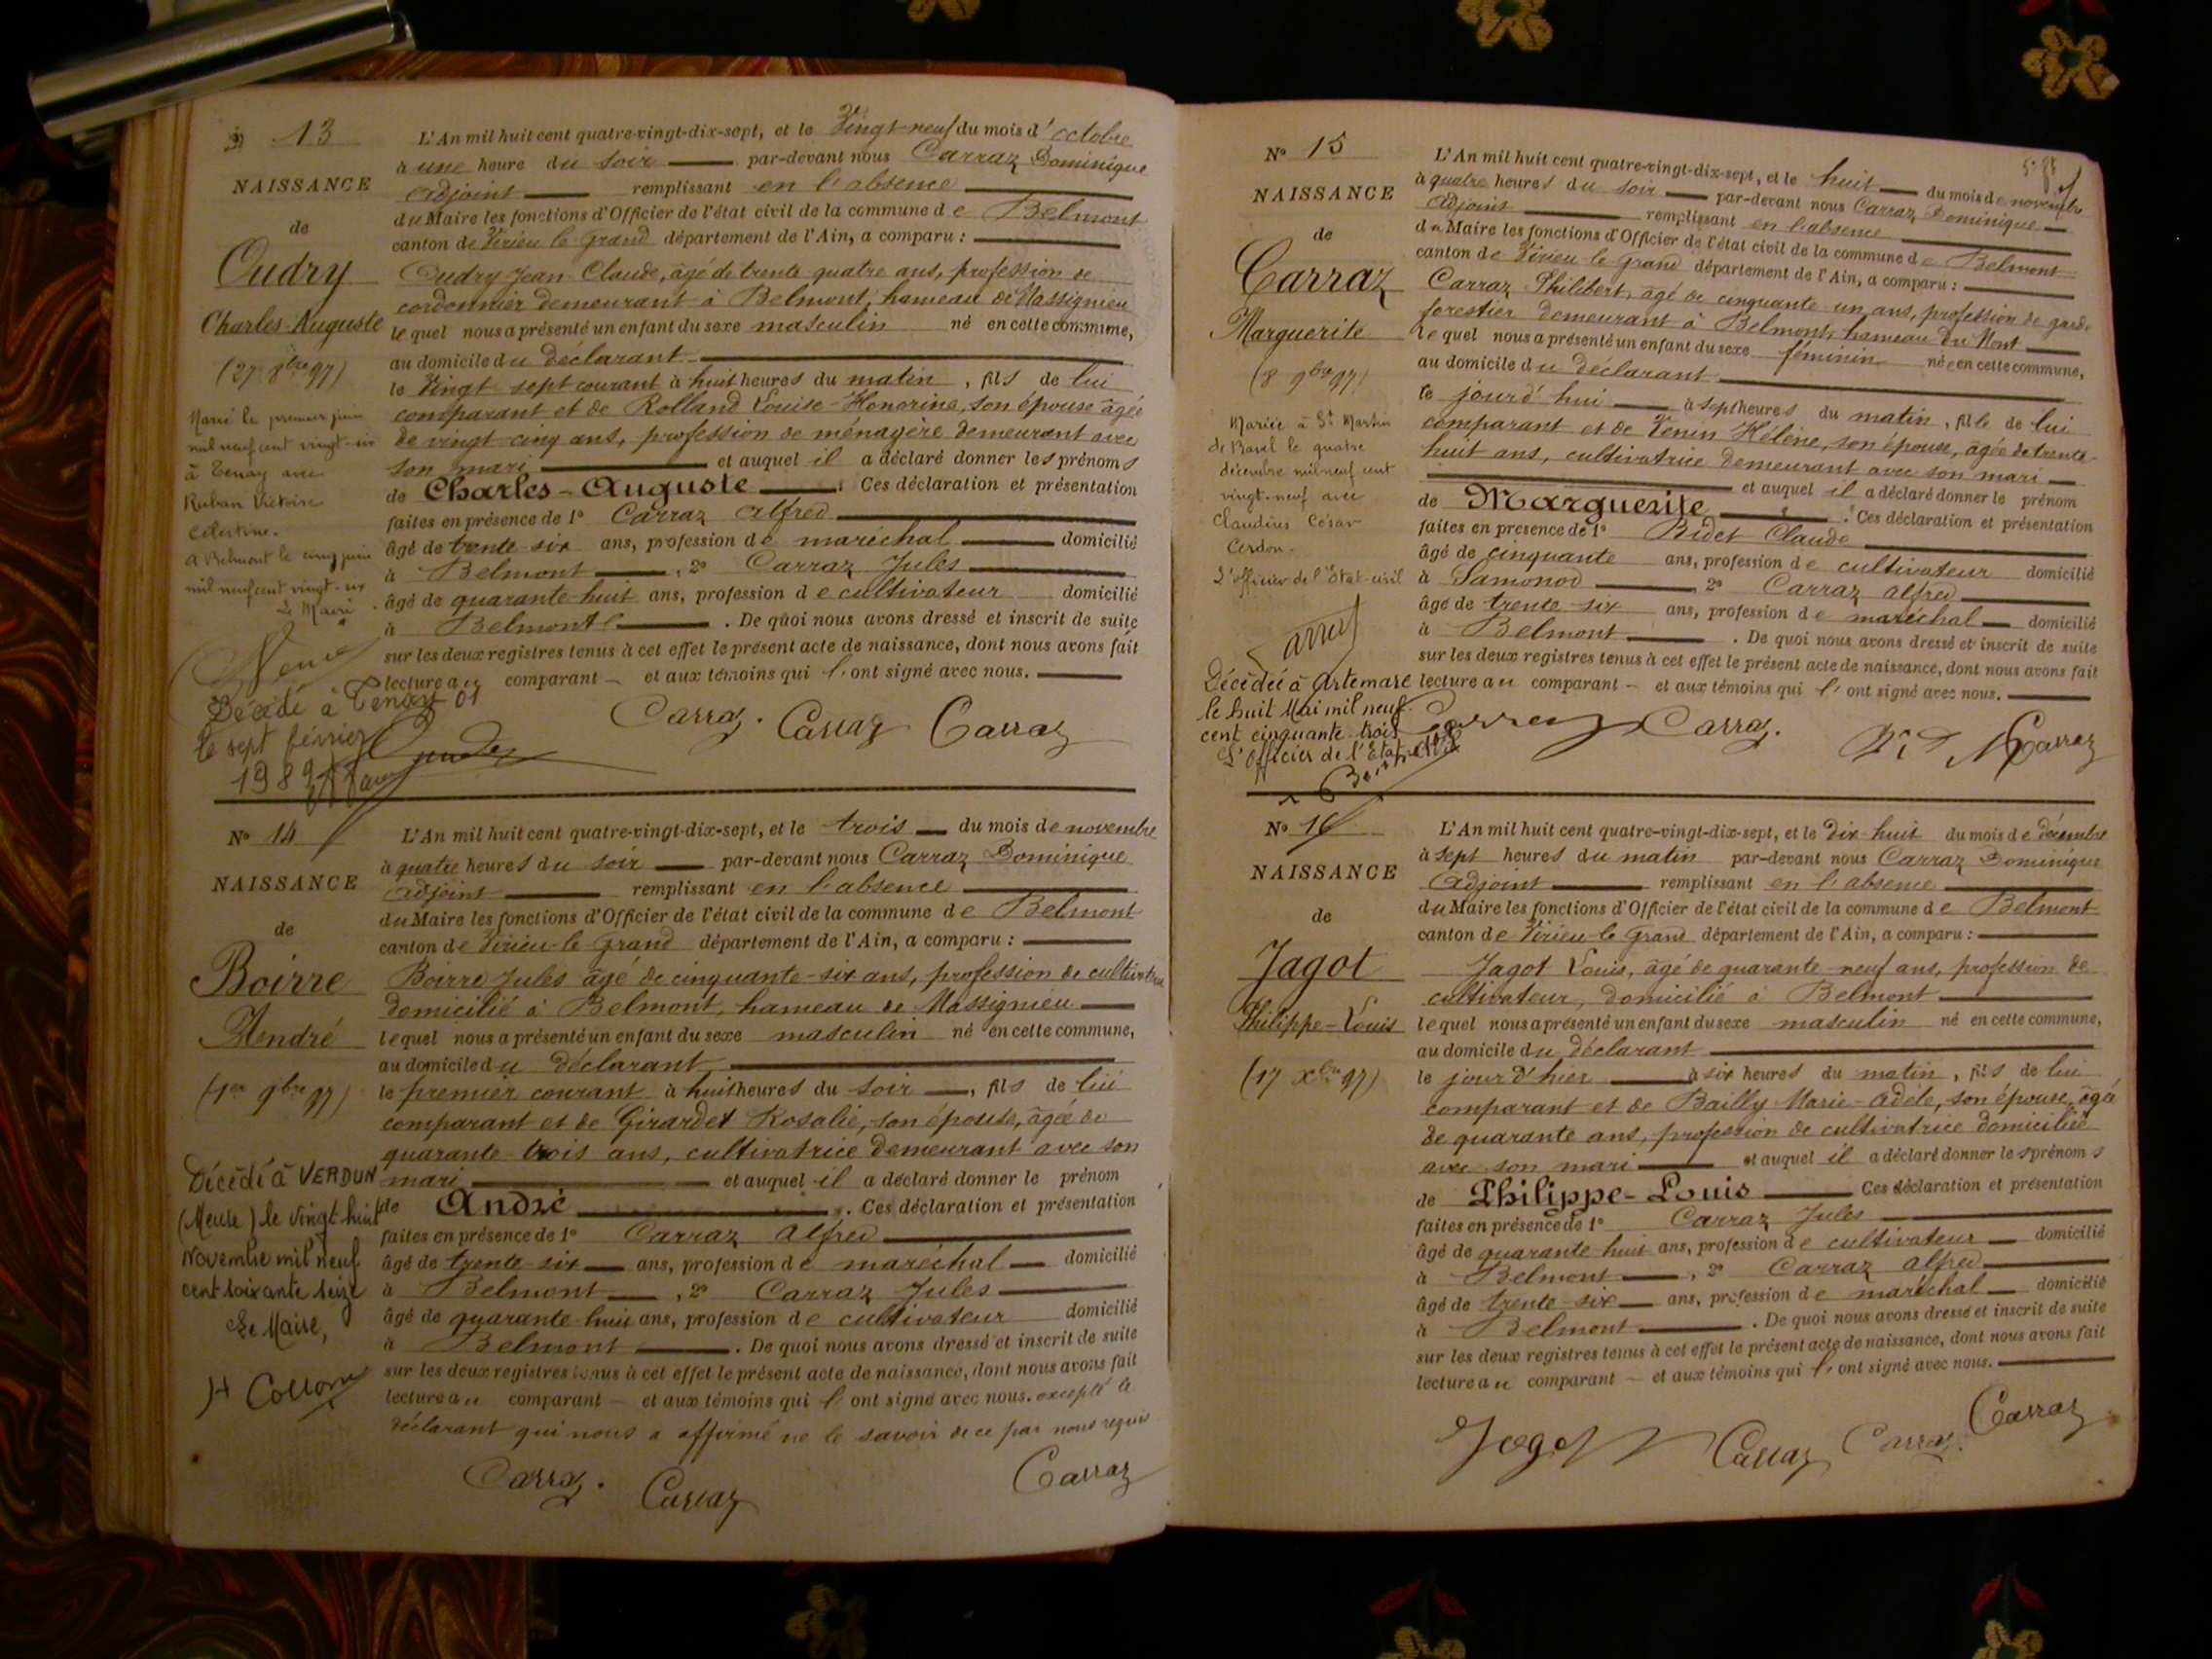 N° 13
NAISSANCE
de
Oudry
Charles-Auguste
(27 8bre 97)
Marié le premier juin
mil neuf cent vingt-six
à Tenay avec
Ruban Victoire
Célestine.
A Belmont le cinq juin
mil neuf cent vingt-six
Le Maire
Décédé à Tenay 01
le sept février
1989
L'An mil huit cent quatre-vingt-dix-sept, et le Vingt-neuf du mois d'octobre
à une heure du soir par-devant nous Carraz Dominique
adjoint remplissant en l'absence
du Maire les fonctions d'Officier de l'état civil de la commune de Belmont
canton de Virieu le Grand département de l'Ain, a comparu :
Oudry Jean Claude, âgé de trente quatre ans, profession de
cordonnier demeurant à Belmont, hameau de Massignieu
lequel nous a présenté un enfant du sexe masculin né en cette commune,
au domicile du déclarant
le Vingt sept courant à huit heures du matin, fils de lui
comparant et de Rolland Louise-Honorine, son épouse âgée
de vingt cinq ans, profession de ménagère demeurant avec
son mari et auquel il a déclaré donner les prénoms
de Charles-Auguste. Ces déclaration et présentation
faites en présence de 1° Carraz Alfred
âgé de trente six ans, profession de maréchal domicilié
à Belmont, 2° Carraz Jules
âgé de quarante huit ans, profession de cultivateur domicilié
à Belmont. De quoi nous avons dressé et inscrit de suite
sur les deux registres tenus à cet effet le présent acte de naissance, dont nous avons fait
lecture au comparant et aux témoins qui l'ont signé avec nous.
Carraz. Carraz Carraz
N° 14
NAISSANCE
de
Boirre
André
(1er 9bre 97)
Décédé à VERDUN
(Meuse) le vingt-huit
Novembre mil neuf
cent soixante seize
Le Maire,
L'An mil huit cent quatre-vingt-dix-sept, et le trois du mois de novembre
à quatre heures du soir par-devant nous Carraz Dominique
adjoint remplissant en l'absence
du Maire les fonctions d'Officier de l'état civil de la commune de Belmont
canton de Virieu-le-Grand département de l'Ain, a comparu :
Boirre Jules âgé de cinquante-six ans, profession de cultivateur
domicilié à Belmont, hameau de Massignieu
lequel nous a présenté un enfant du sexe masculin né en cette commune,
au domicile du déclarant
le premier courant à huit heures du soir, fils de lui
comparant et de Girardet Rosalie, son épouse, âgée de
quarante-trois ans, cultivatrice demeurant avec son
mari et auquel il a déclaré donner le prénom
de André. Ces déclaration et présentation
faites en présence de 1° Carraz Alfred
âgé de trente-six ans, profession de maréchal domicilié
à Belmont, 2° Carraz Jules
âgé de quarante huit ans, profession de cultivateur domicilié
à Belmont. De quoi nous avons dressé et inscrit de suite
sur les deux registres tenus à cet effet le présent acte de naissance, dont nous avons fait
lecture au comparant et aux témoins qui l'ont signé avec nous. excepté le
déclarant qui nous a affirmé ne le savoir de ce par nous requis
Carraz. Carraz Carraz
N° 15
NAISSANCE
de
Carraz
Marguerite
(8 9bre 97)
Mariée à St Martin
de Bavel le quatre
décembre mil neuf cent
vingt-neuf avec
Claudius César
Cerdon.
L'officier de l'Etat-civil
Décédée à Artemare
le huit Mai mil neuf
cent cinquante-trois
L'Officier de l'Etat civil
L'An mil huit cent quatre-vingt-dix-sept, et le huit du mois de novembre
à quatre heures du soir par-devant nous Carraz Dominique
Adjoint remplissant en l'absence
du Maire les fonctions d'Officier de l'état civil de la commune de Belmont
canton de Virieu le Grand département de l'Ain, a comparu :
Carraz Philibert, âgé de cinquante-un ans, profession de garde
forestier demeurant à Belmont, hameau du Mont
lequel nous a présenté un enfant du sexe féminin née en cette commune,
au domicile du déclarant
le jourd'hui à sept heures du matin, fille de lui
comparant et de Venin Hélène, son épouse, âgée de trente-
huit ans, cultivatrice demeurant avec son mari
et auquel il a déclaré donner le prénom
de Marguerite. Ces déclaration et présentation
faites en présence de 1° Bidet Claude
âgé de cinquante ans, profession de cultivateur domicilié
à Samonod 2° Carraz Alfred
âgé de trente-six ans, profession de maréchal domicilié
à Belmont. De quoi nous avons dressé et inscrit de suite
sur les deux registres tenus à cet effet le présent acte de naissance, dont nous avons fait
lecture au comparant et aux témoins qui l'ont signé avec nous.
Carraz Carraz. Carraz
N° 16
NAISSANCE
de
Jagot
Philippe-Louis
(17 Xbre 97)
L'An mil huit cent quatre-vingt-dix-sept, et le Dix-huit du mois de décembre
à sept heures du matin par-devant nous Carraz Dominique
Adjoint remplissant en l'absence
du Maire les fonctions d'Officier de l'état civil de la commune de Belmont
canton de Virieu-le-Grand département de l'Ain, a comparu :
Jagot Louis, âgé de quarante-neuf ans, profession de
cultivateur, domicilié à Belmont
lequel nous a présenté un enfant du sexe masculin né en cette commune,
au domicile du déclarant
le jour d'hier à six heures du matin, fils de lui
comparant et de Bailly Marie-Adèle, son épouse, âgée
de quarante ans, profession de cultivatrice domiciliée
avec son mari et auquel il a déclaré donner les prénoms
de Philippe-Louis Ces déclaration et présentation
faites en présence de 1° Carraz Jules
âgé de quarante-huit ans, profession de cultivateur domicilié
à Belmont, 2° Carraz Alfred
âgé de trente-six ans, profession de maréchal domicilié
à Belmont. De quoi nous avons dressé et inscrit de suite
sur les deux registres tenus à cet effet le présent acte de naissance, dont nous avons fait
lecture au comparant et aux témoins qui l'ont signé avec nous.
Jagot Carraz Carraz. Carraz